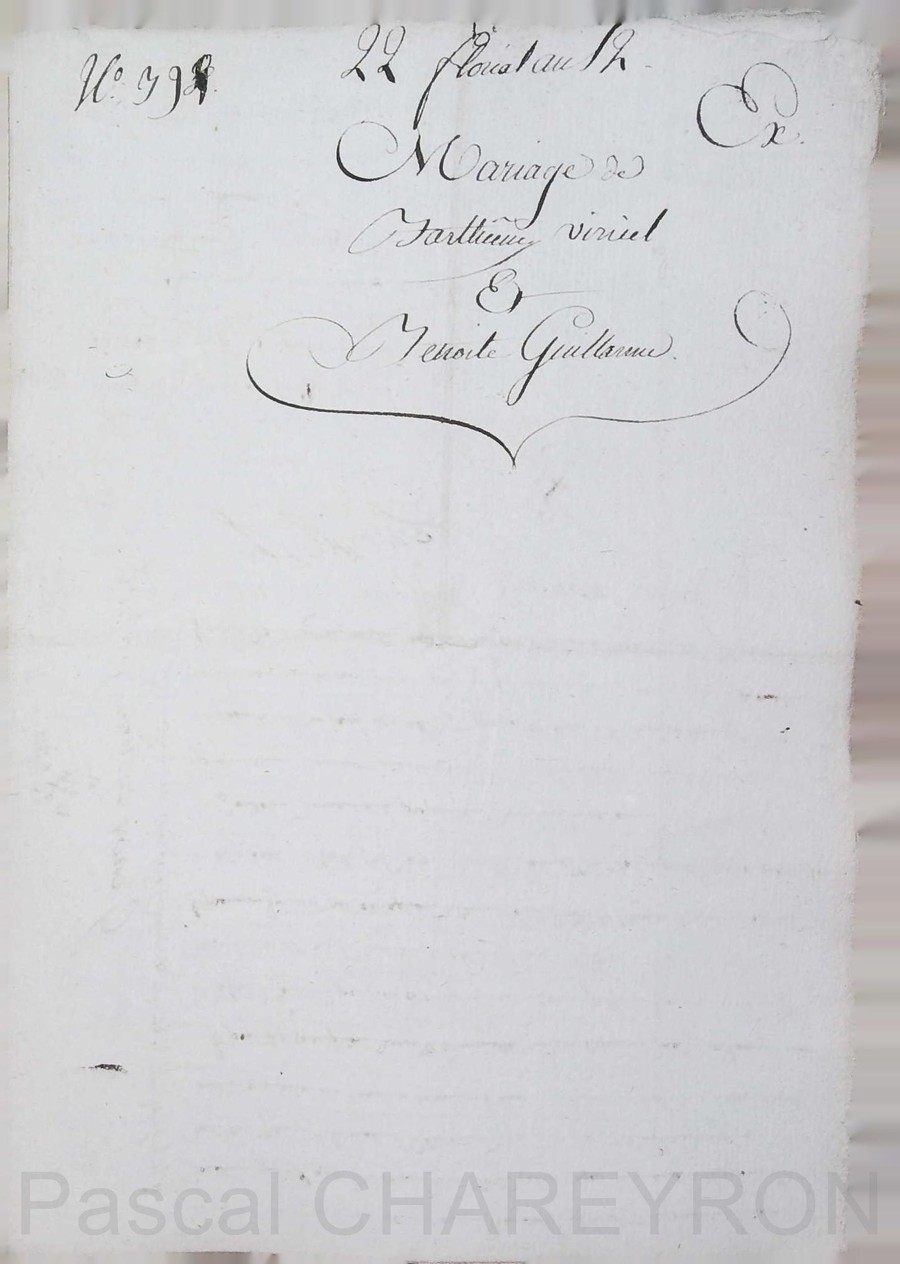 N.° 398.
22 floréal an 12.
Ex.
Mariage de
Barthélemy viricel
Et
Benoite Guillaume.
Pascal CHAREYRON